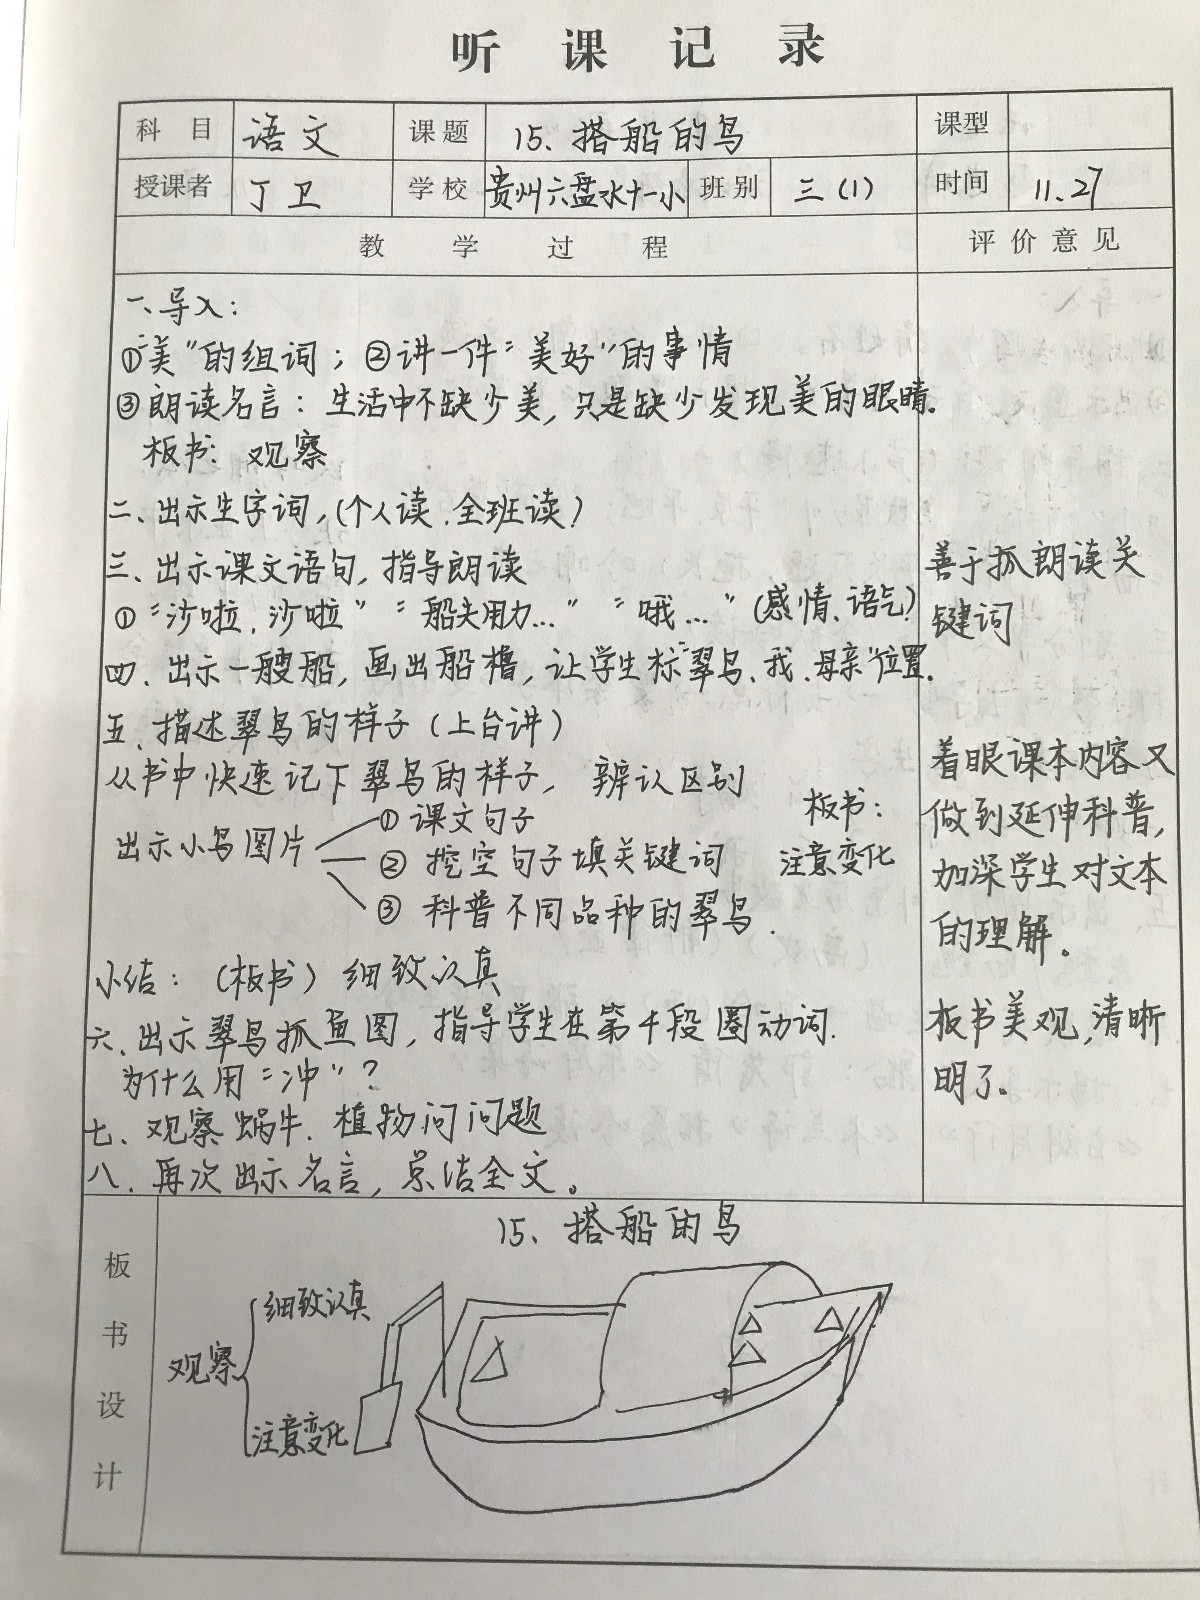 听课记录
科目 语文 课题 15、搭船的鸟 课型
授课者 丁卫 学校 贵州六盘水十一小 班别 三(1) 时间 11.27
教学过程 评价意见
一、导入：
①“美”的组词；②讲一件“美好”的事情
③朗读名言：生活中不缺少美，只是缺少发现美的眼睛。
板书：观察
二、出示生字词，(个人读、全班读)
三、出示课文语句，指导朗读
①“沙啦、沙啦”“船夫用力…”“哦…”(感情、语气)
四、出示一艘船，画出船橹，让学生标“翠鸟、我、母亲”位置。
五、描述翠鸟的样子(上台讲)
从书中快速记下翠鸟的样子，辨认区别
出示小鸟图片
①课文句子
②挖空句子填关键词
③科普不同品种的翠鸟.
板书：
注意变化
小结：(板书)细致认真
六、出示翠鸟抓鱼图，指导学生在第4段圈动词.
为什么用“冲”？
七、观察蜗牛、植物问问题
八、再次出示名言，总结全文。
善于抓朗读关
键词
着眼课本内容又
做到延伸科普，
加深学生对文本
的理解。
板书美观，清晰
明了。
板书设计
15、搭船的鸟
观察
细致认真
注意变化